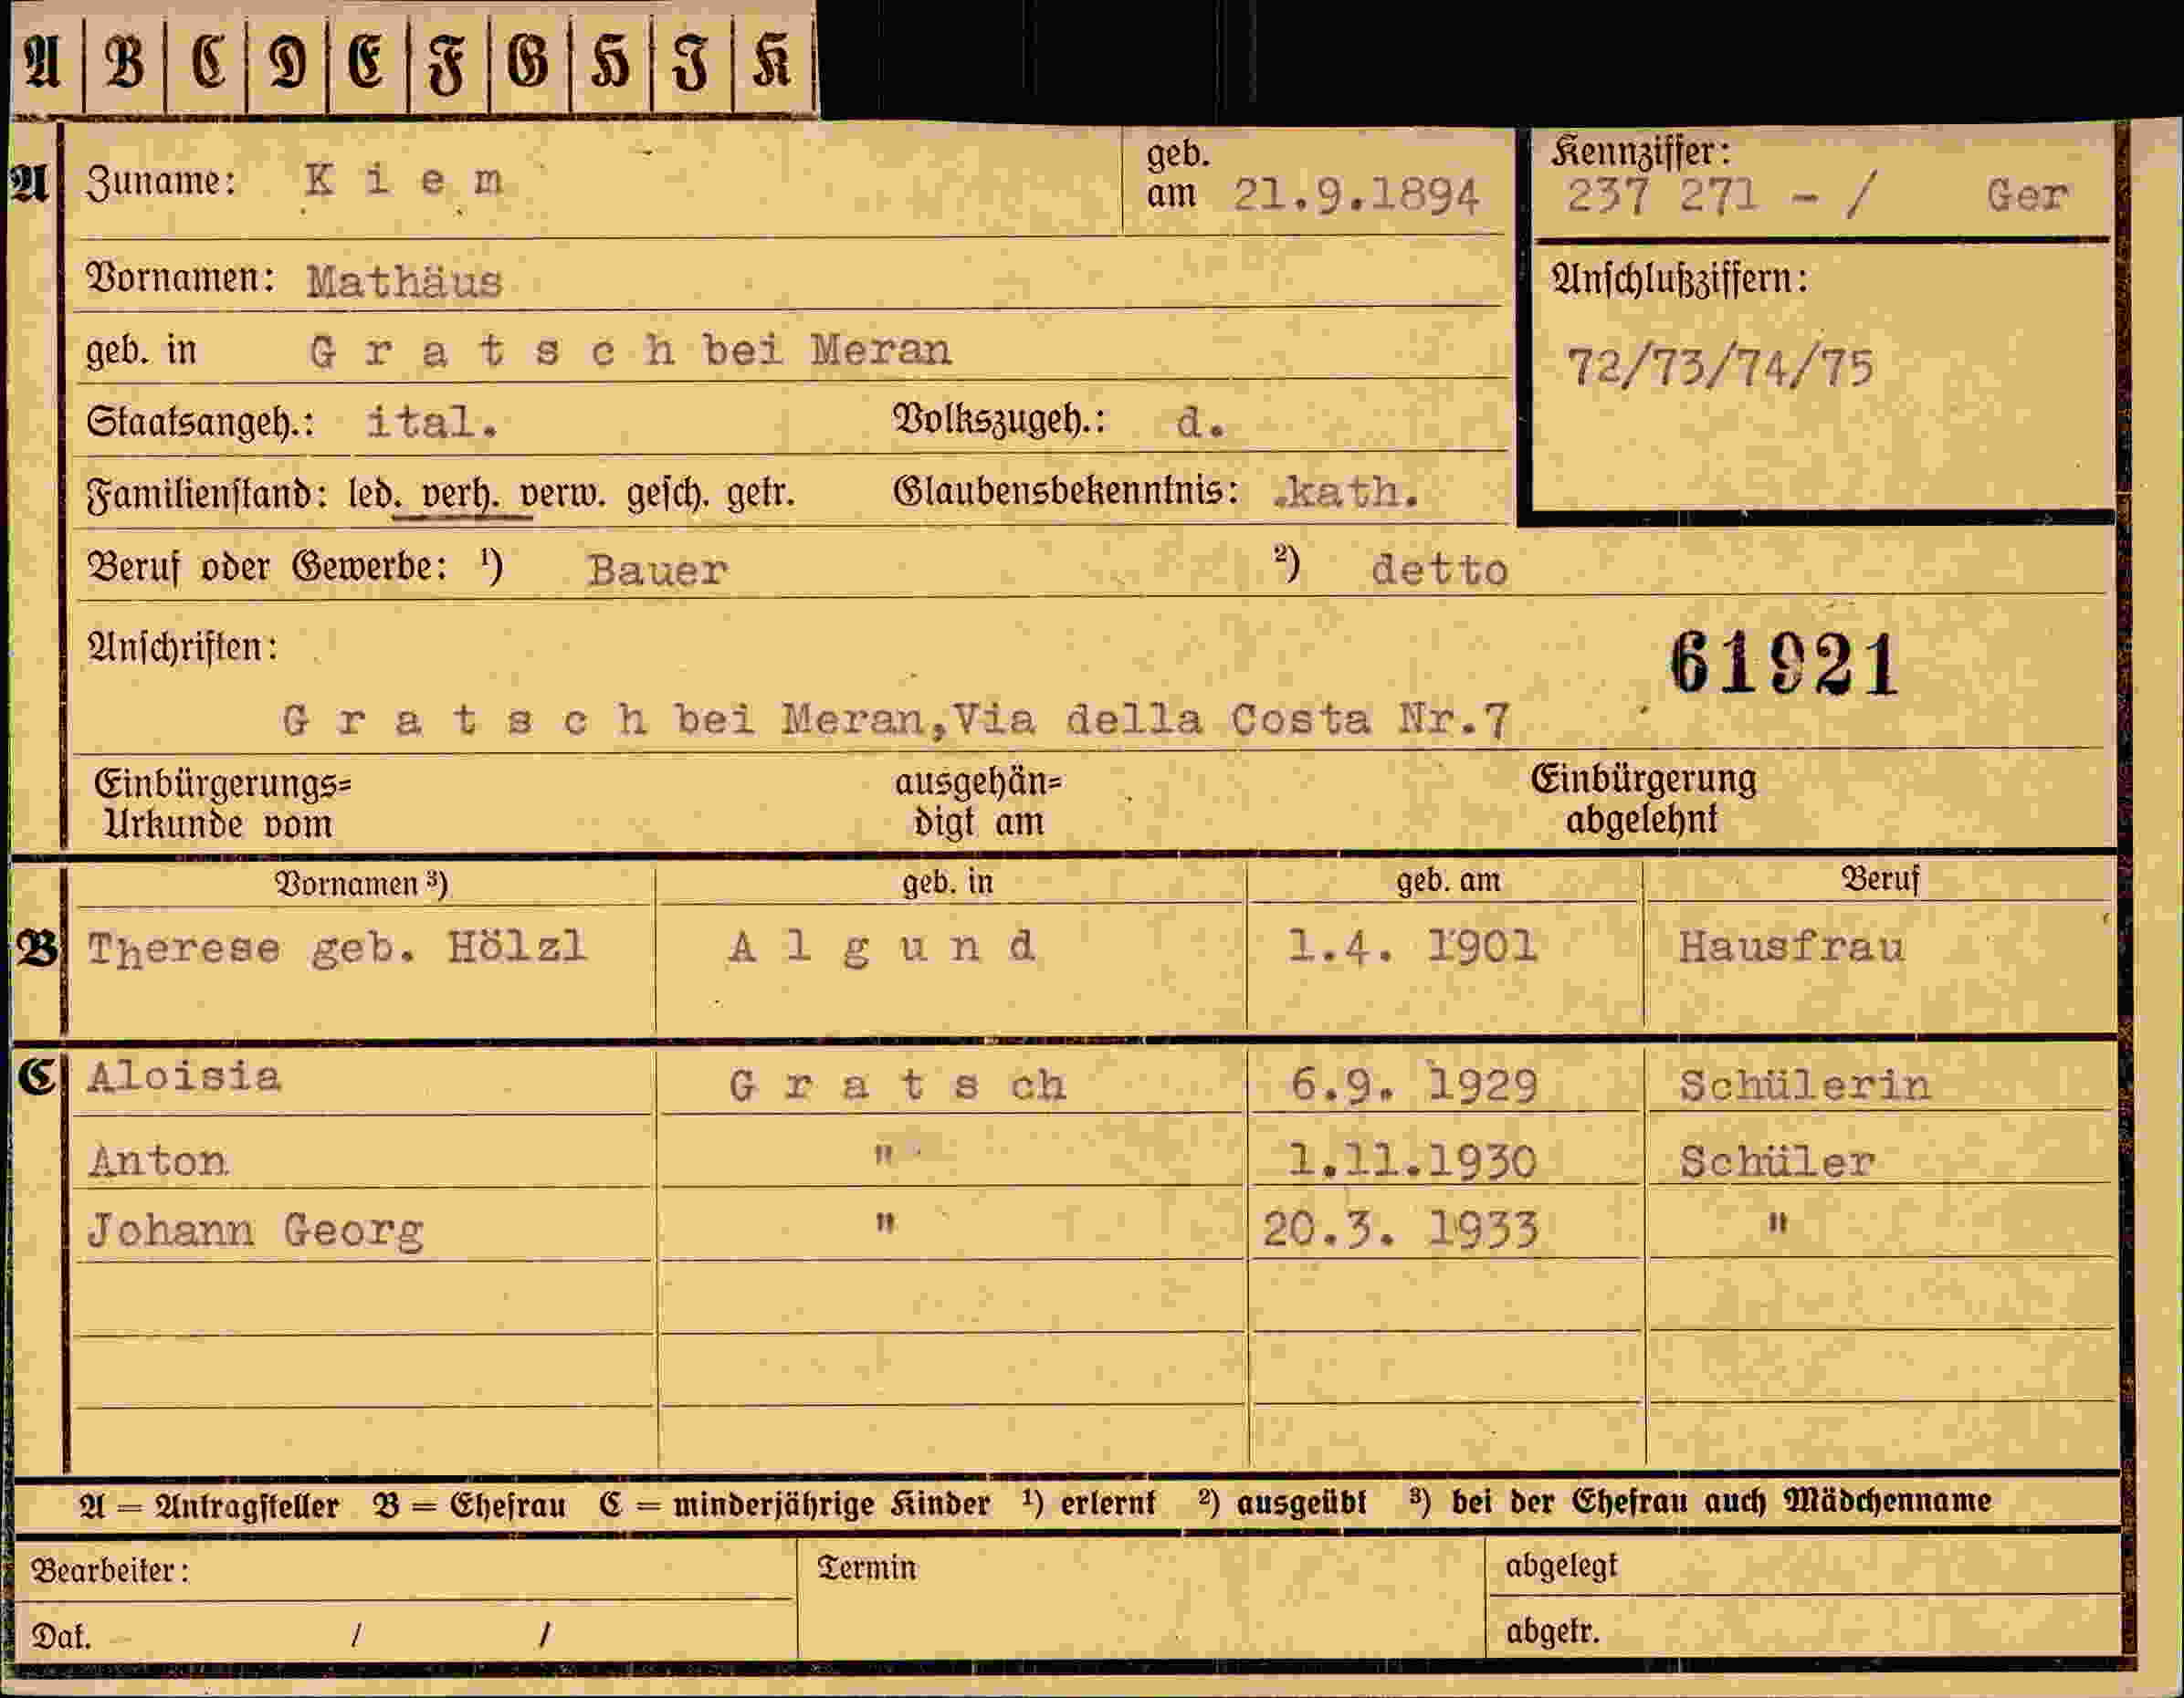 A B C D E F G H I K
A Zuname: K i e m geb. am 21.9.1894 Kennziffer: 237 271 - / Ger
Vornamen: Mathäus Anschlußziffern:
geb. in G r a t s c h bei Meran 72/73/74/75
Staatsangeh.: ital. Volkszugeh.: d.
Familienstand: led. verh. verw. gesch. getr. Glaubensbekenntnis: .kath.
Beruf oder Gewerbe: ¹) Bauer ²) detto
Anschriften: 61921
G r a t s c h bei Meran,Via della Costa Nr.7
Einbürgerungs= ausgehän= Einbürgerung
Urkunde vom digt am abgelehnt
Vornamen ³) geb. in geb. am Beruf
B Therese geb. Hölzl A l g u n d 1.4. 1901 Hausfrau
C Aloisia G r a t s ch 6.9. 1929 Schülerin
Anton " 1.11.1930 Schüler
Johann Georg " 20.3. 1933 "
A = Antragsteller B = Ehefrau C = minderjährige Kinder ¹) erlernt ²) ausgeübt ³) bei der Ehefrau auch Mädchenname
Bearbeiter: Termin abgelegt
Dat. / / abgetr.